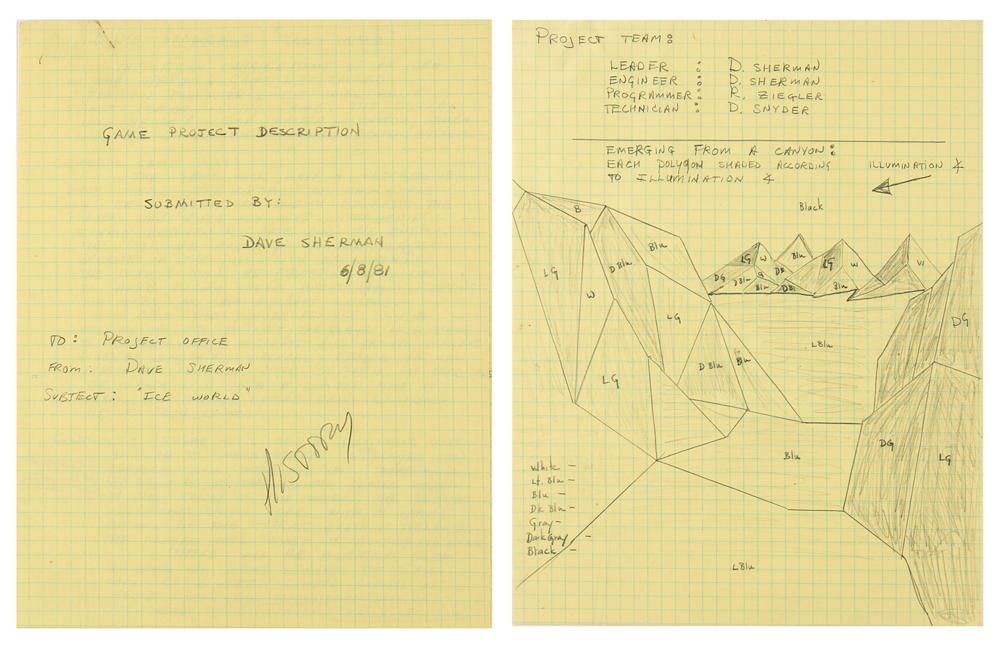 GAME PROJECT DESCRIPTION
SUBMITTED BY:
DAVE SHERMAN
6/8/81
TO: PROJECT OFFICE
FROM: DAVE SHERMAN
SUBJECT: "ICE WORLD"
HISTORY
PROJECT TEAM:
LEADER : D. SHERMAN
ENGINEER : D. SHERMAN
PROGRAMMER: R. ZIEGLER
TECHNICIAN : D. SNYDER
EMERGING FROM A CANYON:
EACH POLYGON SHADED ACCORDING
TO ILLUMINATION ∡
ILLUMINATION ∡
Black
B
Blu
LG
D Blu
W
LG
LG
D Blu
Blu
LG
W
Blu
LG
W
W
DG
D Blu
Blu
Blu
DG
L Blu
DG
LG
Blu
White -
Lt. Blu -
Blu -
Dk Blu -
Gray -
Dark Gray -
Black -
L Blu